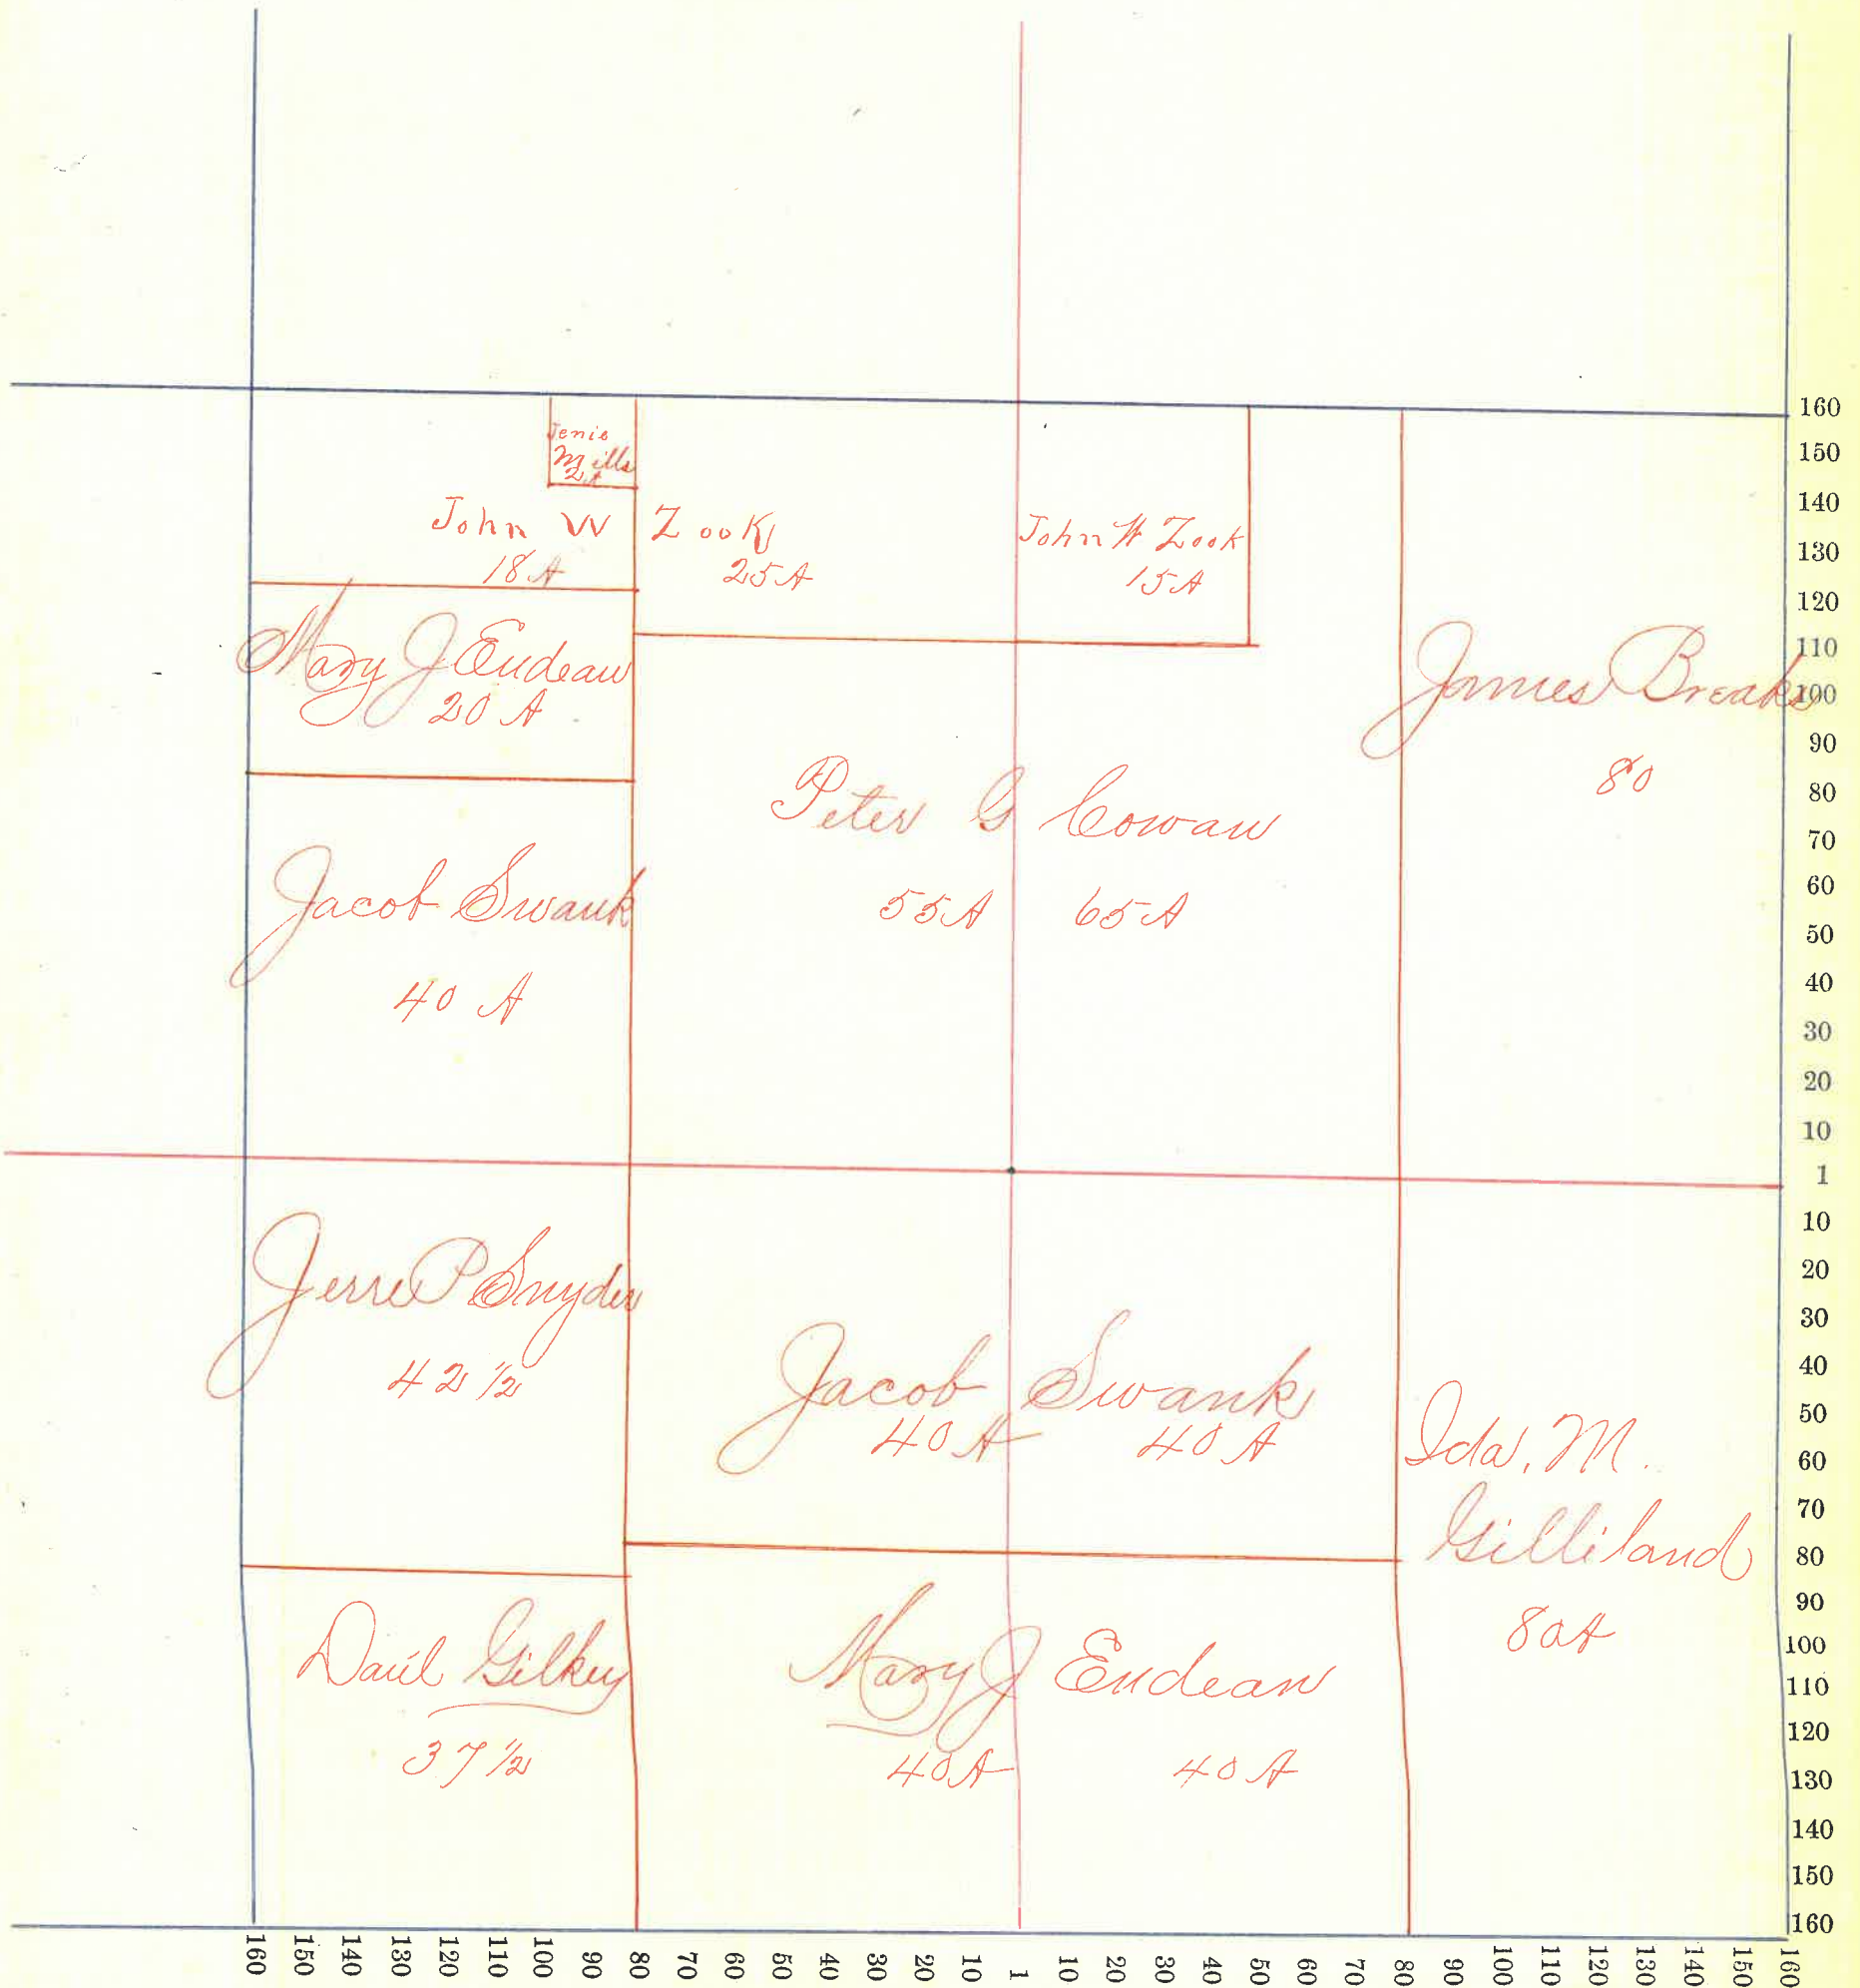 Jenie
Mills
2A
John W Zook
18 A
25 A
John W Zook
15 A
Mary J Endean
20 A
James Breaks
80
Peter G Cowan
55 A 65 A
Jacob Swank
40 A
Jerre P Snyder
42 1/2
Jacob Swank
40 A 40 A
Ida. M.
Gilliland
80A
Danl Gilkey
37 1/2
Mary J Endean
40 A 40 A
160
150
140
130
120
110
100
90
80
70
60
50
40
30
20
10
1
10
20
30
40
50
60
70
80
90
100
110
120
130
140
150
160
160 150 140 130 120 110 100 90 80 70 60 50 40 30 20 10 1 10 20 30 40 50 60 70 80 90 100 110 120 130 140 150 160